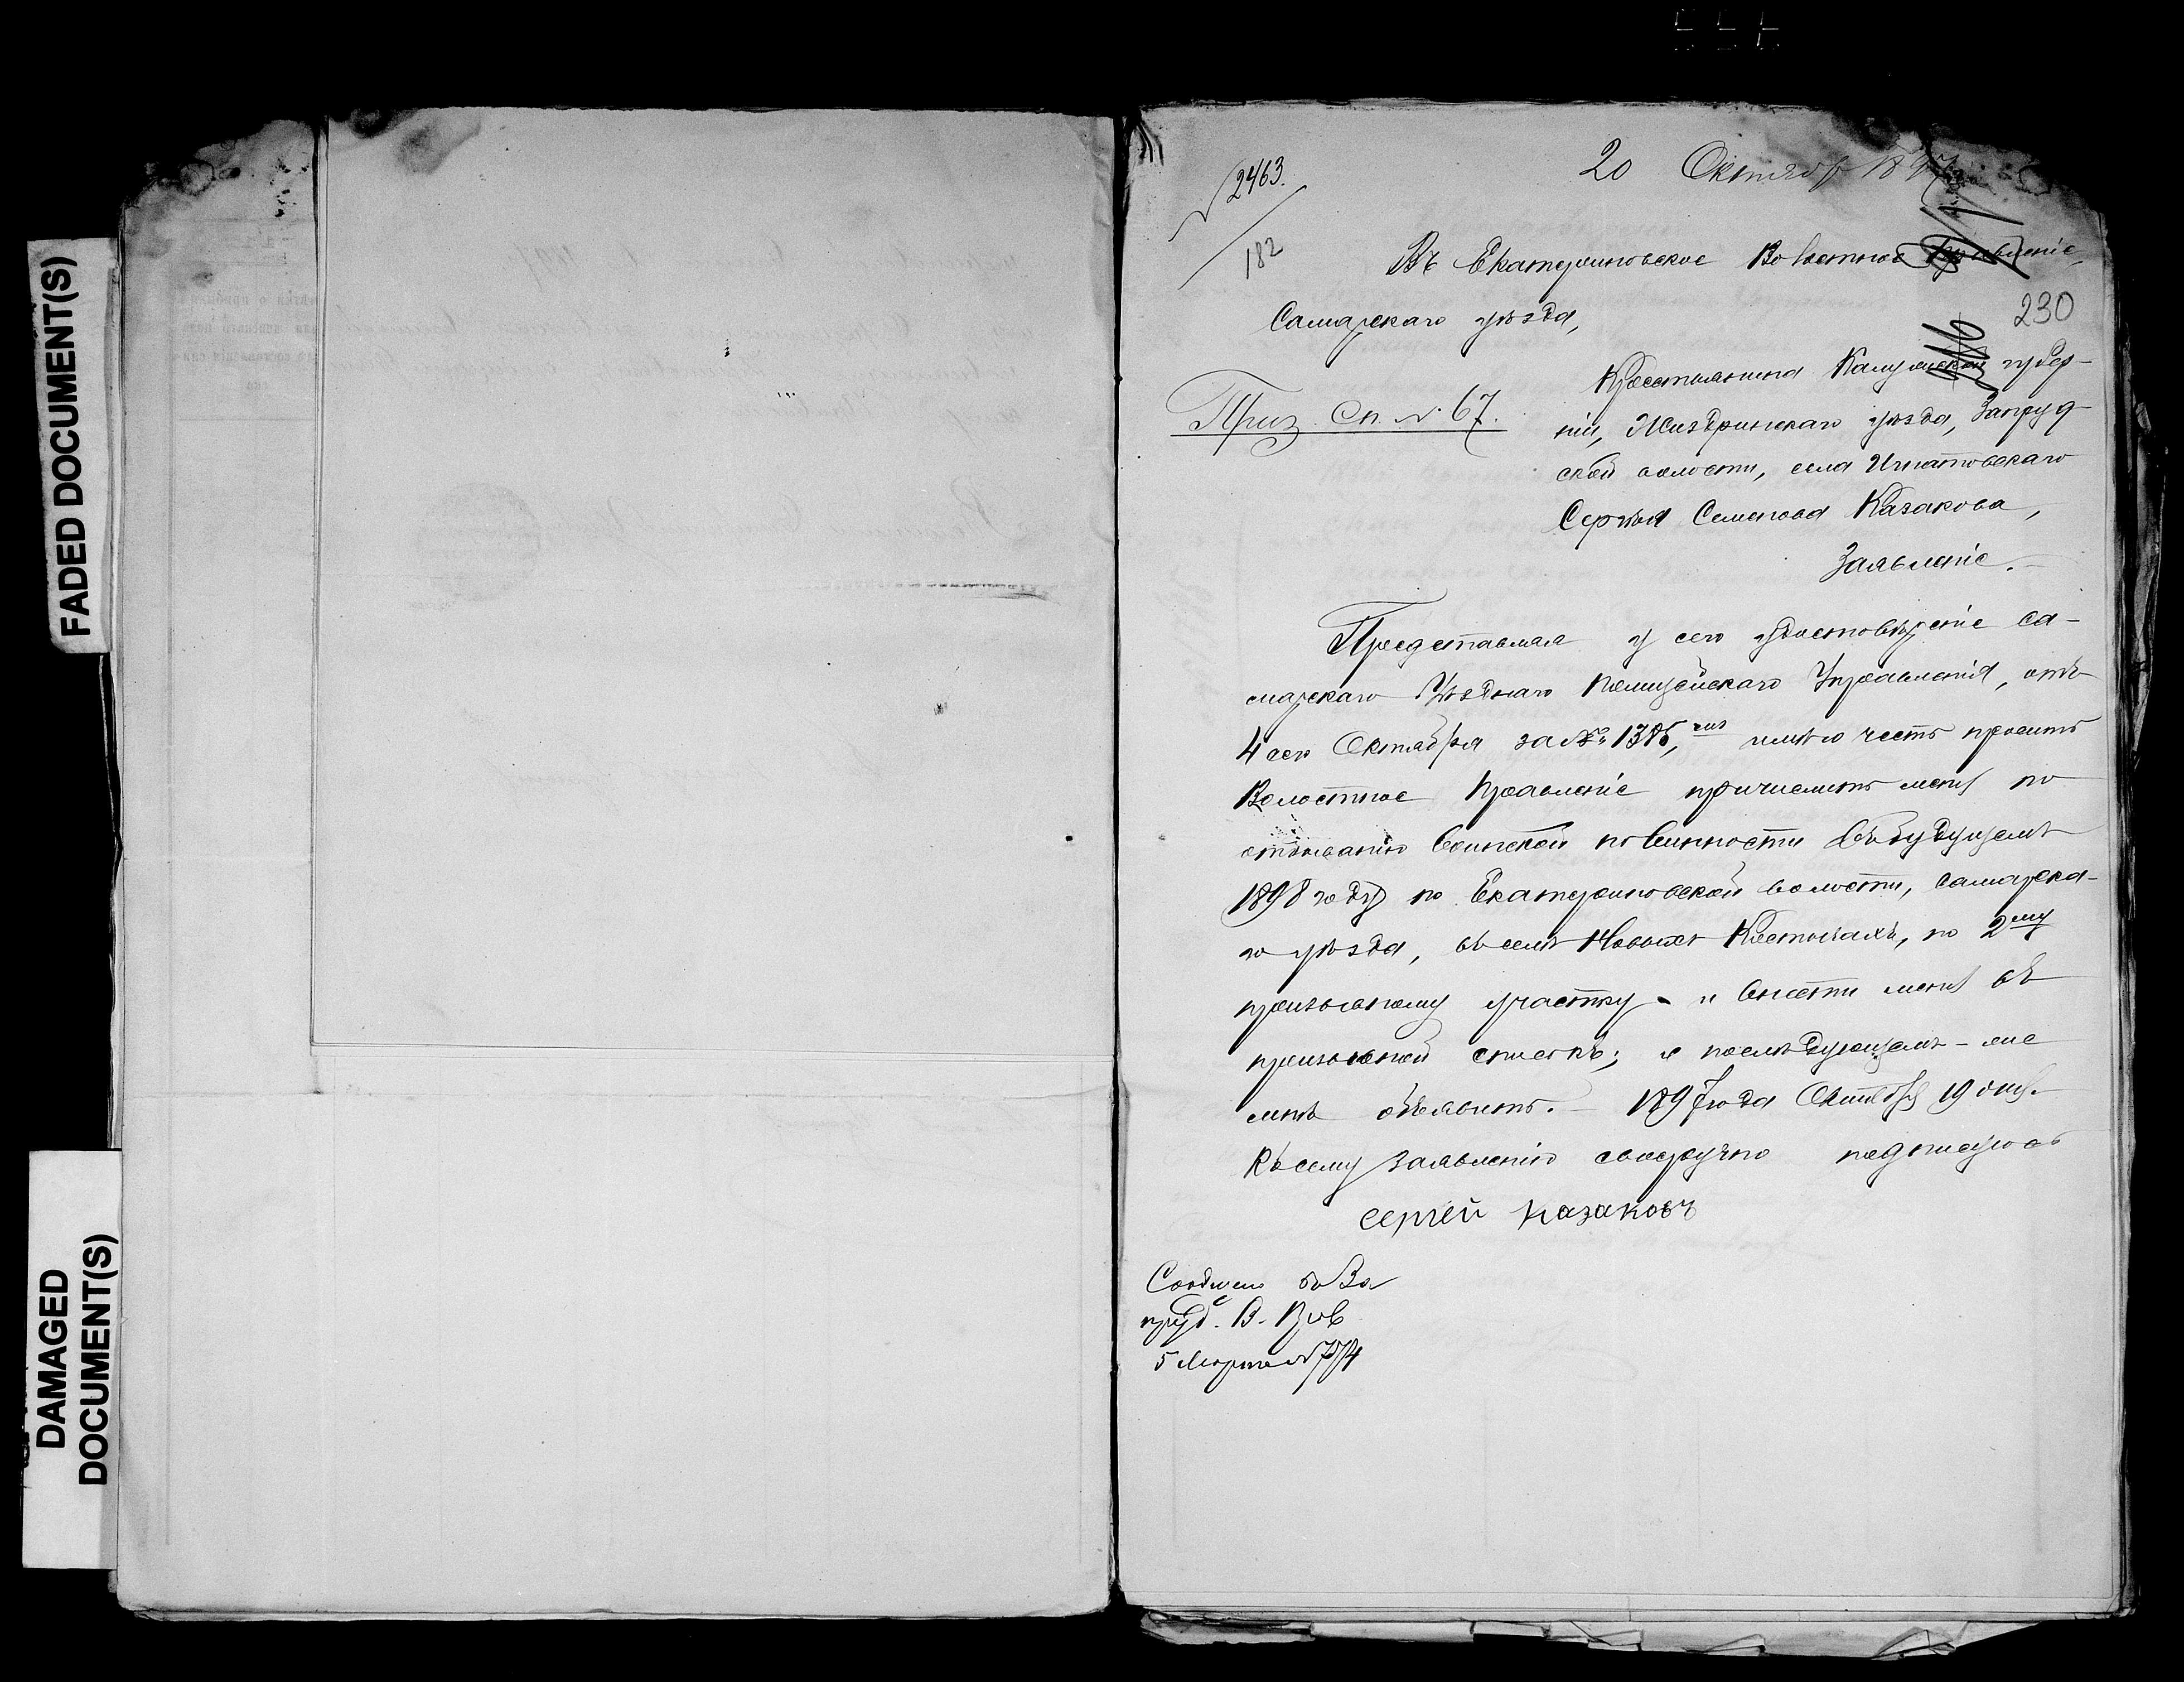 FADED DOCUMENT(S)
DAMAGED
DOCUMENT(S)
20 Октября 1897
2463.
182
Въ Екатериновское Волостное Правленіе,
Самарскаго уѣзда,
230
Приз. Сп. № 67.
Крестьянина Калужской губер-
ніи, Жиздринскаго уѣзда, Запруд-
ской волости, села Игнатовскаго
Сергѣя Семенова Казакова,
Заявленіе.
Представляя у сего удостовѣреніе Са-
марскаго Уѣзднаго Полицейскаго Управленія, отъ
4 сего Октября за №, имѣю честь просить
Волостное Правленіе причислить меня по
отбыванію воинской повинности въ будущемъ
1898 году по Екатериновской волости, Самарска-
го уѣзда, въ селѣ Новыхъ Костычахъ, по 2му
призывному участку и внести меня въ
призывной списокъ; о послѣдующемъ-же
мнѣ объявить. 1897 года Октября 19 дня.
Къ сему заявленію своеручно подписуюсь
Сергей Казаковъ
Сообщено во За
пруд. В. Прав
5 Марта № 774